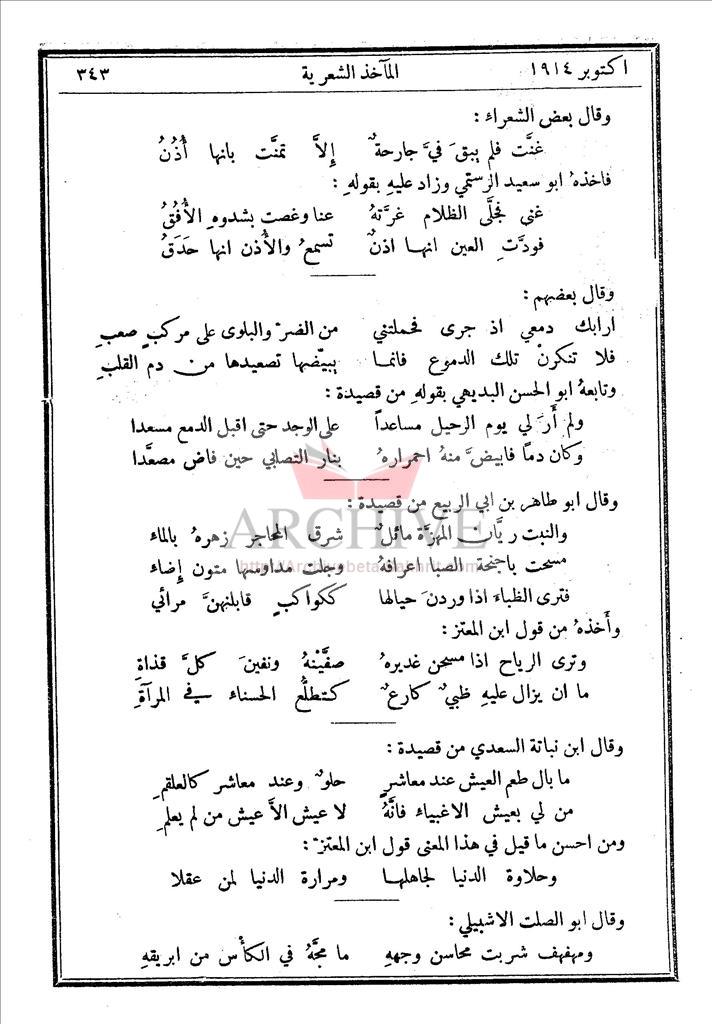 اكتوبر ١٩١٤ المآخذ الشعرية ٣٤٣
وقال بعض الشعراء :
غنَّت فلم يبقَ فيَّ جارحةٌ إلاَّ تمنَّت بانها أُذُنُ
فاخذهُ ابو سعيد الرستمي وزاد عليهِ بقولهِ :
غنى فجلَّى الظلام غرَّتهُ عنا وغصت بشدوهِ الأُفُقُ
فودَّتِ العين انها اذنٌ تسمعُ والأُذن انها حَدَقُ
وقال بعضهم :
ارابك دمعي اذ جرى فحملتني من الضرّ والبلوى على مركبٍ صعبِ
فلا تنكرنْ تلك الدموع فانما يبيّضها تصعيدها من دم القلبِ
وتابعهُ ابو الحسن البديهي بقولهِ من قصيدة :
ولم أرَ لي يوم الرحيل مساعداً على الوجد حتى اقبل الدمع مسعدا
وكان دمًا فابيضَّ منهُ احمرارهُ بنار التصابي حين فاض مصعَّدا
وقال ابو طاهر بن ابي الربيع من قصيدة :
والنبت ريَّان المهزَّة مائلٌ شرق المحاجر زهرهُ بالماء
مسحت باجنحة الصبا اعرافهُ وجلت مداوسها متون إِضاء
فترى الظباء اذا وردنَ حيالها ككواكبٍ قابلنهنَّ مرائي
وأَخذهُ من قول ابن المعتز :
وترى الرياح اذا مسحن غديرهُ صفَّينْهُ ونفينَ كلَّ قذاةِ
ما ان يزال عليهِ ظبيٌ كارعٌ كتطلُّع الحسناء في المرآةِ
وقال ابن نباتة السعدي من قصيدة :
ما بال طعم العيش عند معاشرٍ حلوٌ وعند معاشر كالعلقمِ
من لي بعيش الاغبياء فانَّهُ لا عيش الاَّ عيش من لم يعلمِ
ومن احسن ما قيل في هذا المعنى قول ابن المعتزّ :
وحلاوة الدنيا لجاهلها ومرارة الدنيا لمن عقلا
وقال ابو الصلت الاشبيلي :
ومهفهف شربت محاسن وجههِ ما مجَّهُ في الكأس من ابريقهِ
ARCHIVE